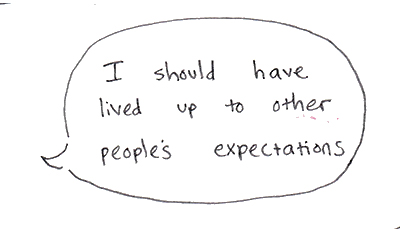 I should have
lived up to other
people's expectations